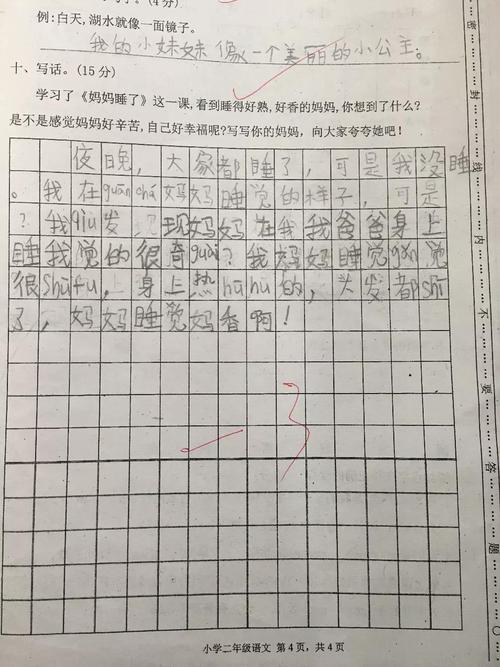 (4 分)
例:白天,湖水就像一面镜子。
我的小妹妹像一个美丽的小公主。
十、写话。(15 分)
学习了《妈妈睡了》这一课,看到睡得好熟,好香的妈妈,你想到了什么?
是不是感觉妈妈好辛苦,自己好幸福呢?写写你的妈妈,向大家夸夸她吧!
夜晚,大家都睡了,可是我没睡
。我在guān chá妈妈睡觉的样子,可是
?我jiu发现妈妈在我我爸爸身上
睡我觉的很奇guài?我妈妈睡觉gǎn觉
很shūfu,身上热hūhū的,头发都shī
了,妈妈睡觉妈香啊!
一3
小学二年级语文 第 4 页,共 4 页
密
封
线
内
不
要
答
题